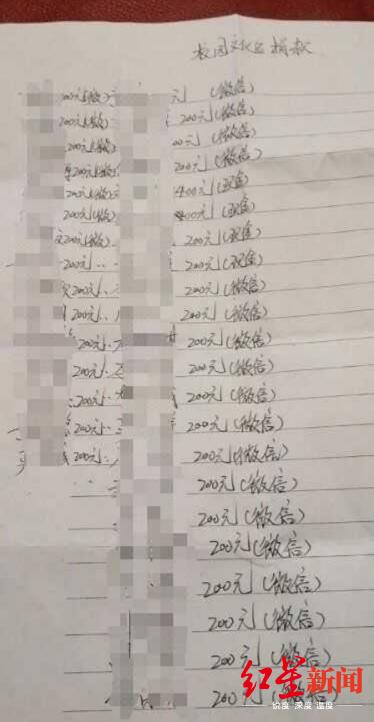 校园文化 捐款
200元(微) 元 (微信)
200元(微) 200元(微信)
200元(微) 00元(微信)
200元(微) 200元(微信)
200元(微) 400元(现金)
200元(微) 400元(现金)
200元(微) 200元(现金)
200元 200元(现金)
200元 200元(微信)
200元 200元(微信)
200元 200元(微信)
200元 200元(微信)
200元 200元(微信)
200元 200元(微信)
200元 200元(微信)
200元(微信)
200元(微信)
200元(微信)
200元(微信)
200元(微信)
200元(微信)
200元(微信)
红星新闻
锐度 深度 温度